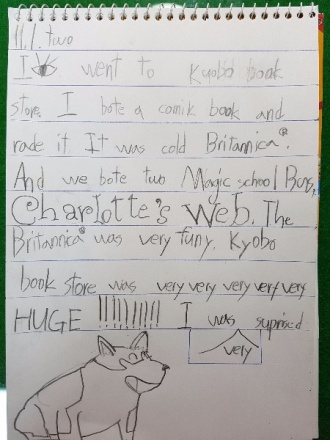 11.1. two
I went to Kyobo book
store. I bote a comik book and
rade it It was cold Britannica®.
And we bote two Magic school Bus,
Charlotte's Web. The
Britannica® was very funy. Kyobo
book store was very very very very very
HUGE !!!!!!!!!! I was suprised
very